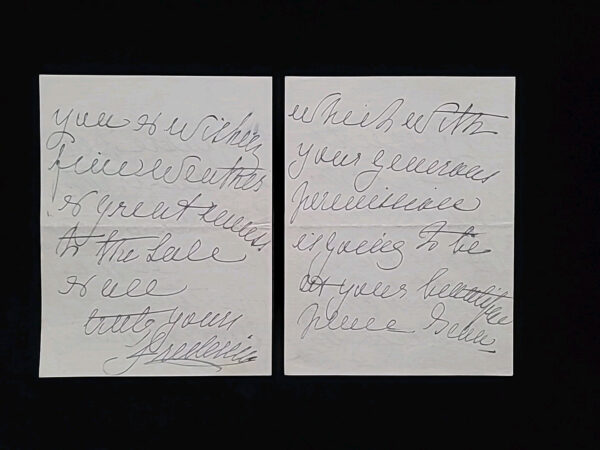 you & wishing
fine weather
& great success
to the Sale
&
truly yours
Frederica
which with
your generous
permission
is going to be
at your beautiful
place